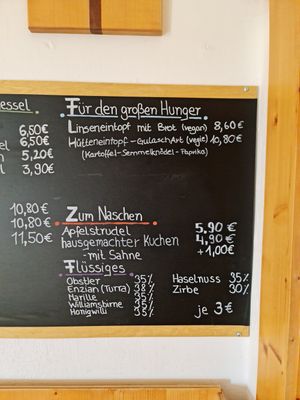 essel
6,50€
el 6,50€
n 5,20€
l 3,90€
10,80€
10,80€
11,50€
Für den großen Hunger
Linseneintopf mit Brot (vegan) 8,60€
Hütteneintopf-Gulasch Art (vegie) 10,80€
(Kartoffel-Semmelknödel-Paprika)
Zum Naschen
Apfelstrudel 5.90€
hausgemachter Kuchen 4,90€
-mit Sahne +1,00€
Flüssiges
Obstler 35%
Enzian (Turra) 38%
Marille 35%
Williamsbirne 35%
Honigwilli 35%
Haselnuss 35%
Zirbe 30%
je 3€